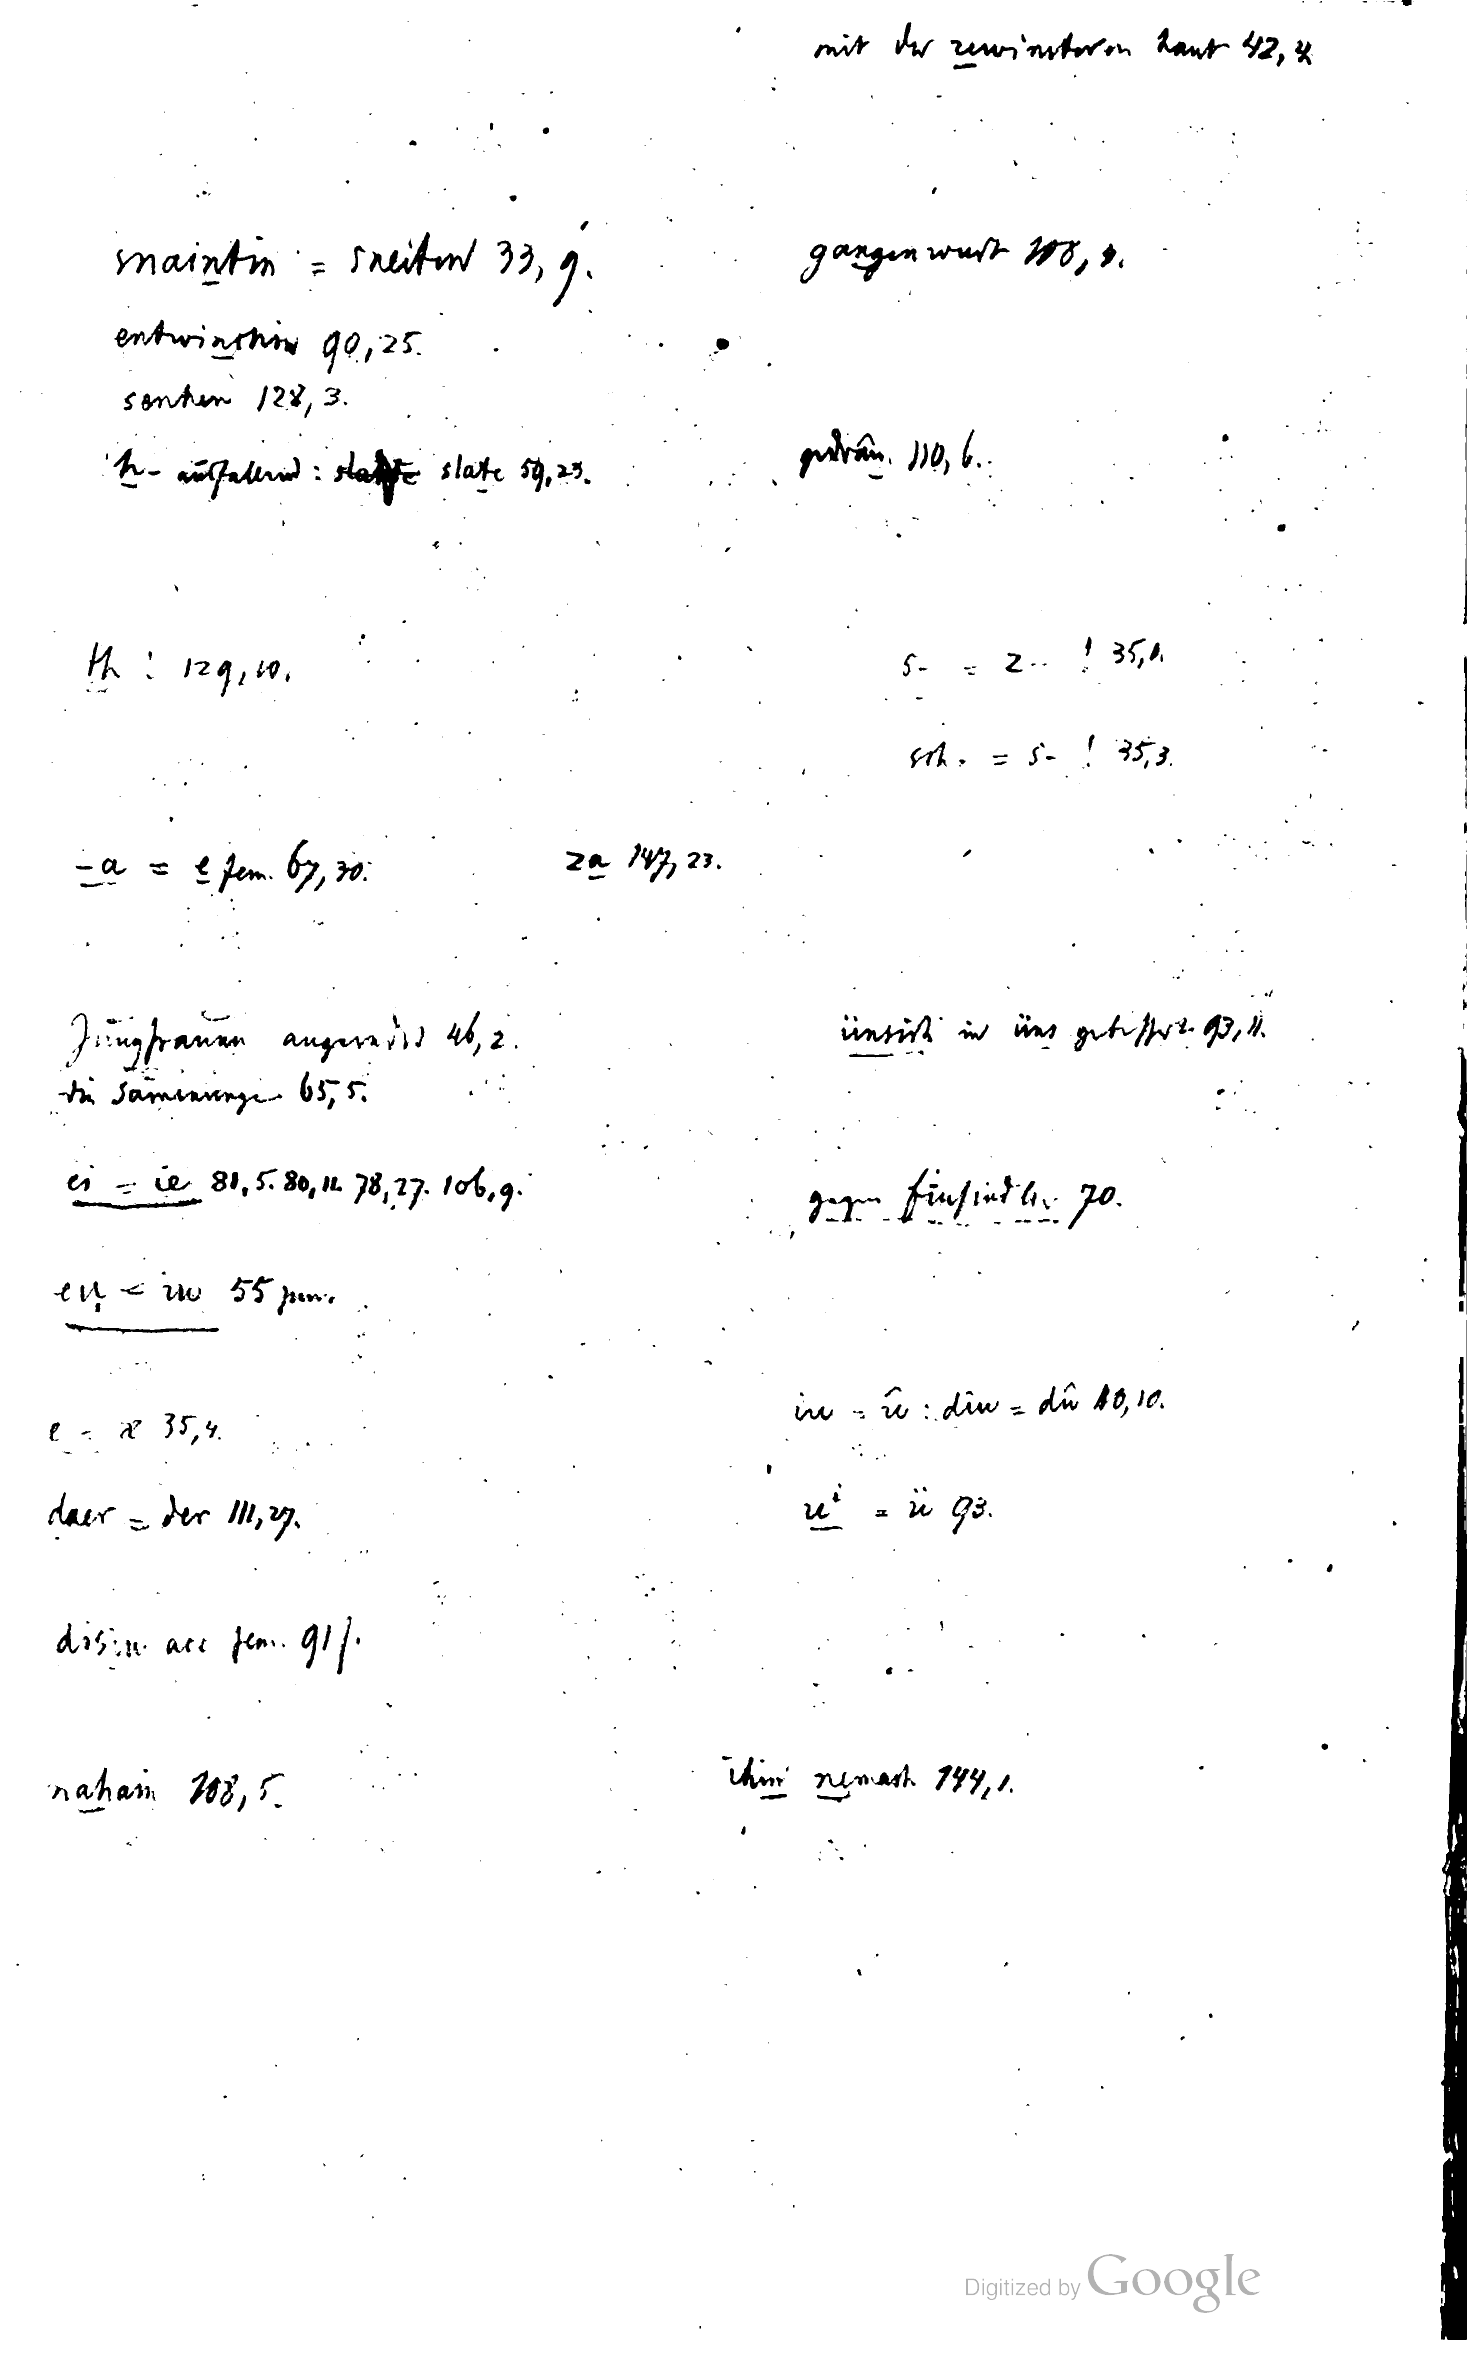 mit der zewinsteren hant 42, 4
maintin = meiten 33, 9.
gangenwurt 108, 1.
entwinchin 90, 25.
senhen 128, 3.
h- ausfallend: slate 59, 23.
110, 6.
th ! 129, 10.
s- = z- ! 35, 1.
sch. = s- ! 35, 3.
-a = e fem. 67, 30.
za 147, 23.
Jungfrauen angeredet 46, 2.
die samenunge 65, 5.
ünsich in üns gebessert 93, 11.
ei = ie 81, 5. 80, 11. 78, 27. 106, 9.
gegen Einsiedler 70.
eu < iu 55
e = æ 35, 4.
iu = û : diu = dû 10, 10.
daer = der 111, 27.
uⁱ = ü 93.
disiu acc fem. 91 f.
naham 108, 5.
ihni nemach 144, 1.
Digitized by Google